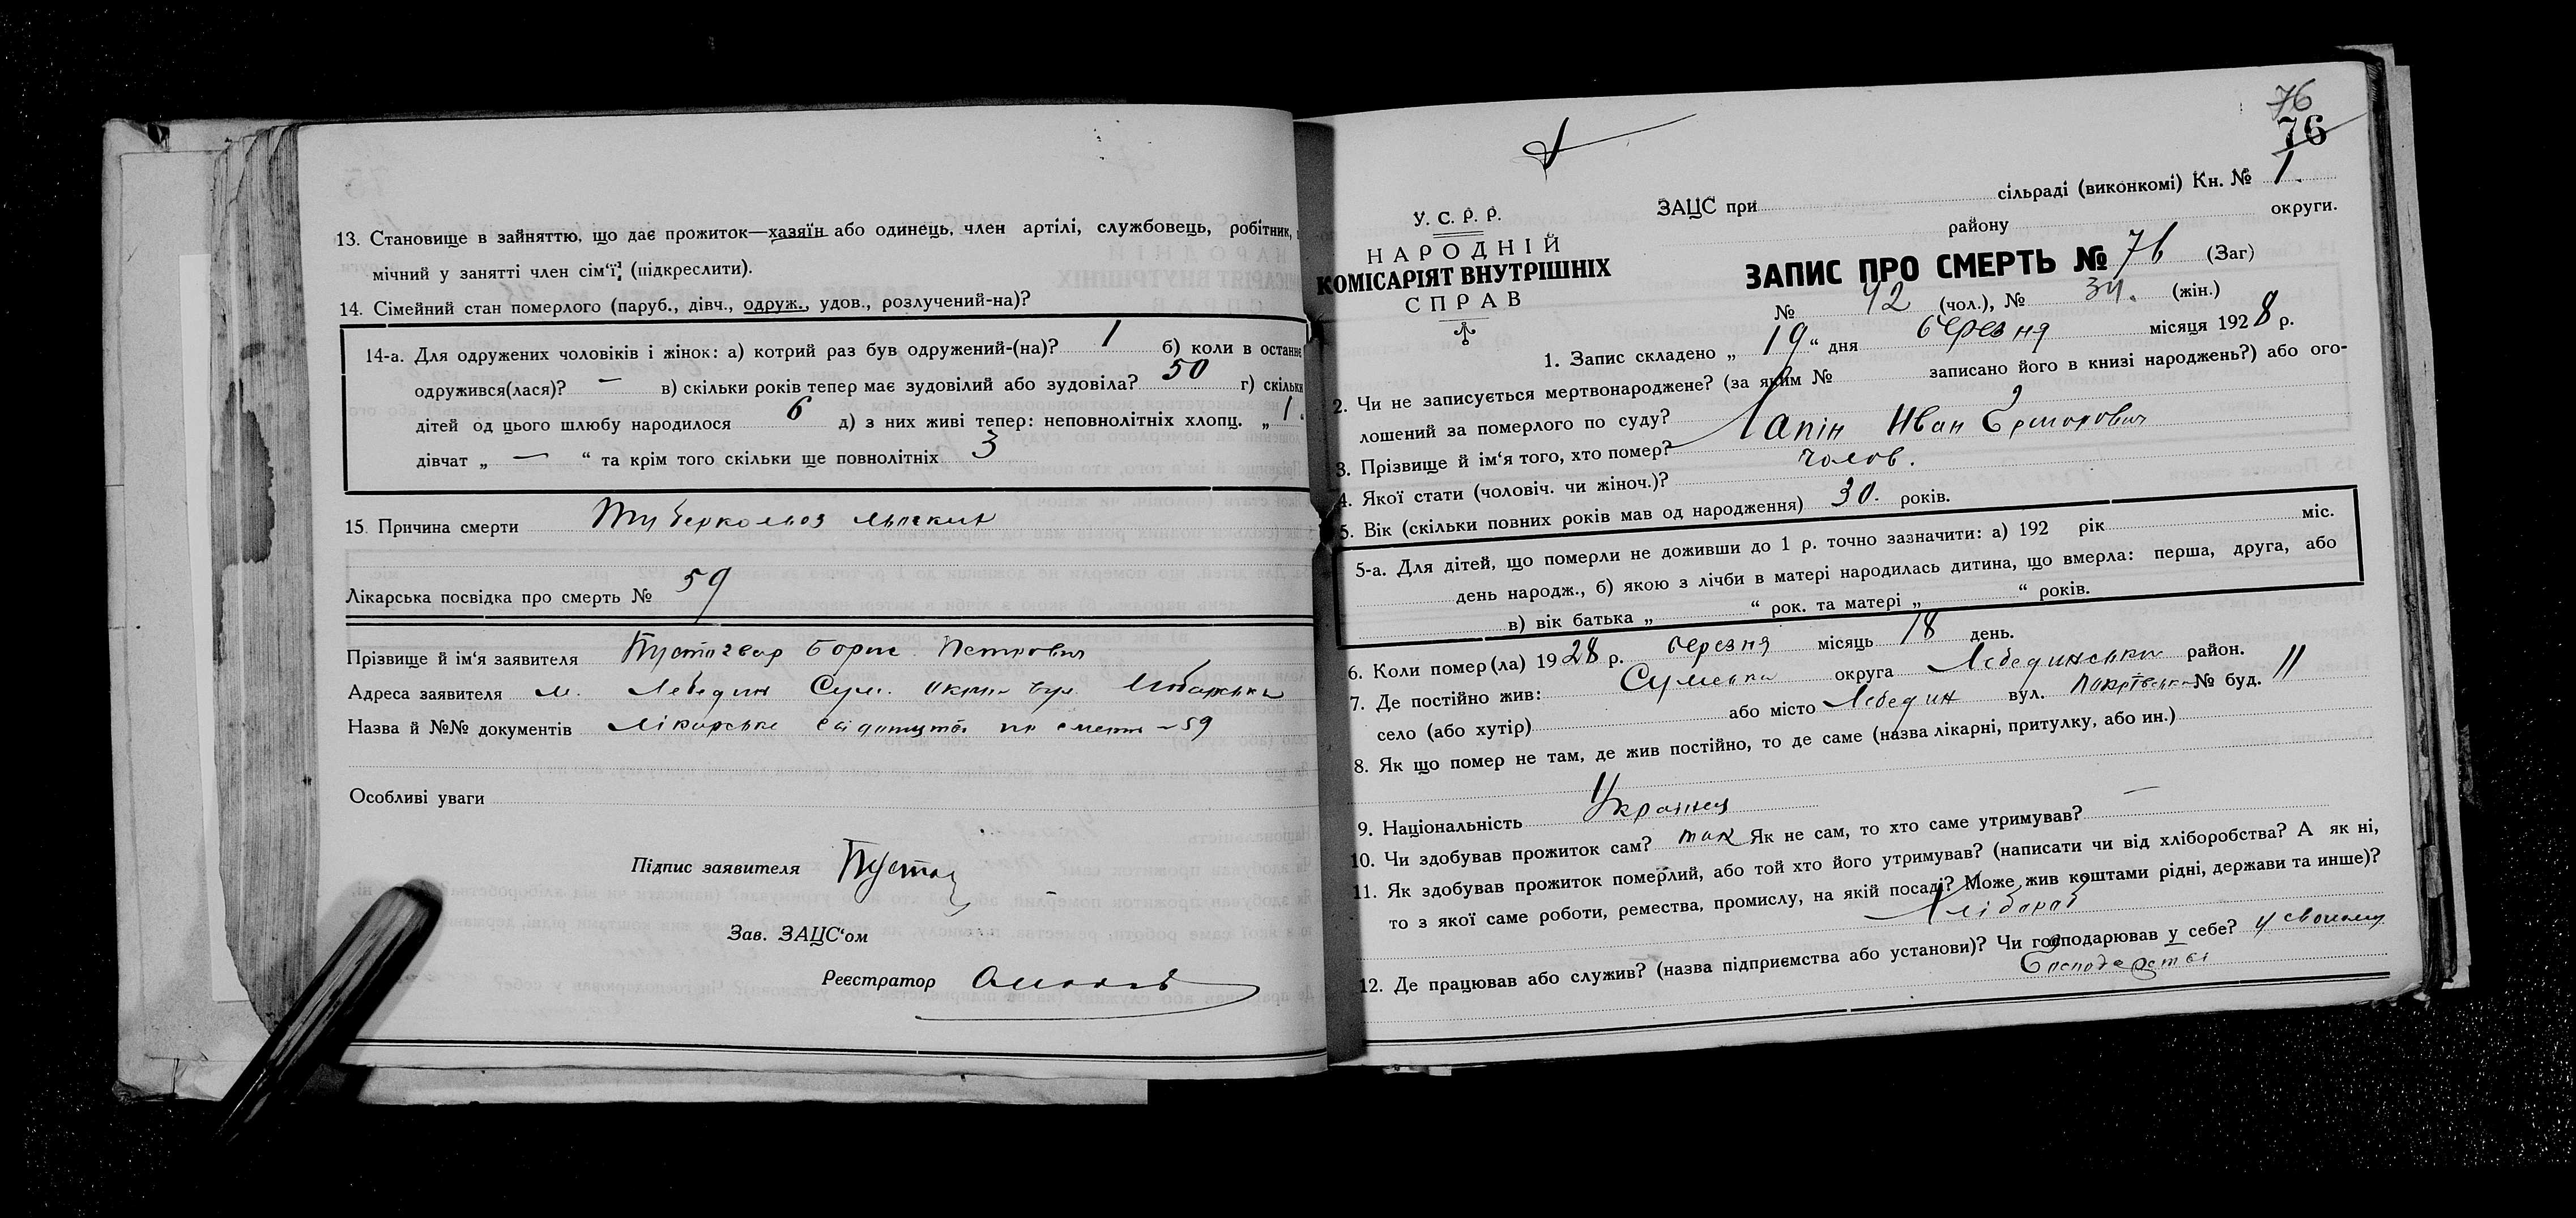 13. Становище в зайняттю, що дає прожиток—хазяїн або одинець, член артілі, службовець, робітник,
мічний у занятті член сім'ї, (підкреслити).
14. Сімейний стан померлого (паруб., дівч., одруж., удов., розлучений-на)?
14-а. Для одружених чоловіків і жінок: а) котрий раз був одружений-(на)? 1 б) коли в останнє
одружився(лася)? — в) скільки років тепер має зудовілий або зудовіла? 50 г) скільки
дітей од цього шлюбу народилося 6 д) з них живі тепер: неповнолітніх хлопц. „ 1 “
дівчат „ — “ та крім того скільки ще повнолітніх 3
15. Причина смерти Туберкольоз
Лікарська посвідка про смерть № 59
Прізвище й ім'я заявителя Борис Петрович
Адреса заявителя м. Лебедин Сум. вул.
Назва й №№ документів Лікарське про смерть – 59
Особливі уваги
Підпис заявителя
Зав. ЗАЦС'ом
Реєстратор
76
76
У. С. Р. Р.
НАРОДНІЙ
КОМІСАРІЯТ ВНУТРІШНІХ
СПРАВ
ЗАЦС при сільраді (виконкомі) Кн. № 1.
району округи.
ЗАПИС ПРО СМЕРТЬ № 76 (Заг)
№ 42 (чол.), № 34. (жін.)
1. Запис складено „ 19 “ дня березня місяця 1928 р.
2. Чи не записується мертвонароджене? (за яким № записано його в книзі народжень?) або ого-
лошений за померлого по суду?
3. Прізвище й ім'я того, хто помер? Лапін Иван
4. Якої стати (чоловіч. чи жіноч.)? чолов.
5. Вік (скільки повних років мав од народження) 30. років.
5-а. Для дітей, що померли не доживши до 1 р. точно зазначити: а) 192 рік міс.
день народж., б) якою з лічби в матері народилась дитина, що вмерла: перша, друга, або
в) вік батька „ “ рок. та матері „ “ років.
6. Коли помер(ла) 1928 р. березня місяць 18 день.
7. Де постійно жив: Сумська округа Лебединський район.
село (або хутір) або місто Лебедин вул. № буд. 11
8. Як що помер не там, де жив постійно, то де саме (назва лікарні, притулку, або ин.)
9. Національність Українец
10. Чи здобував прожиток сам? так Як не сам, то хто саме утримував? —
11. Як здобував прожиток померлий, або той хто його утримував? (написати чи від хліборобства? А як ні,
то з якої саме роботи, ремества, промислу, на якій посаді? Може жив коштами рідні, держави та инше)?
Хлібороб
12. Де працював або служив? (назва підприємства або установи)? Чи господарював у себе? у своєму
господарстві